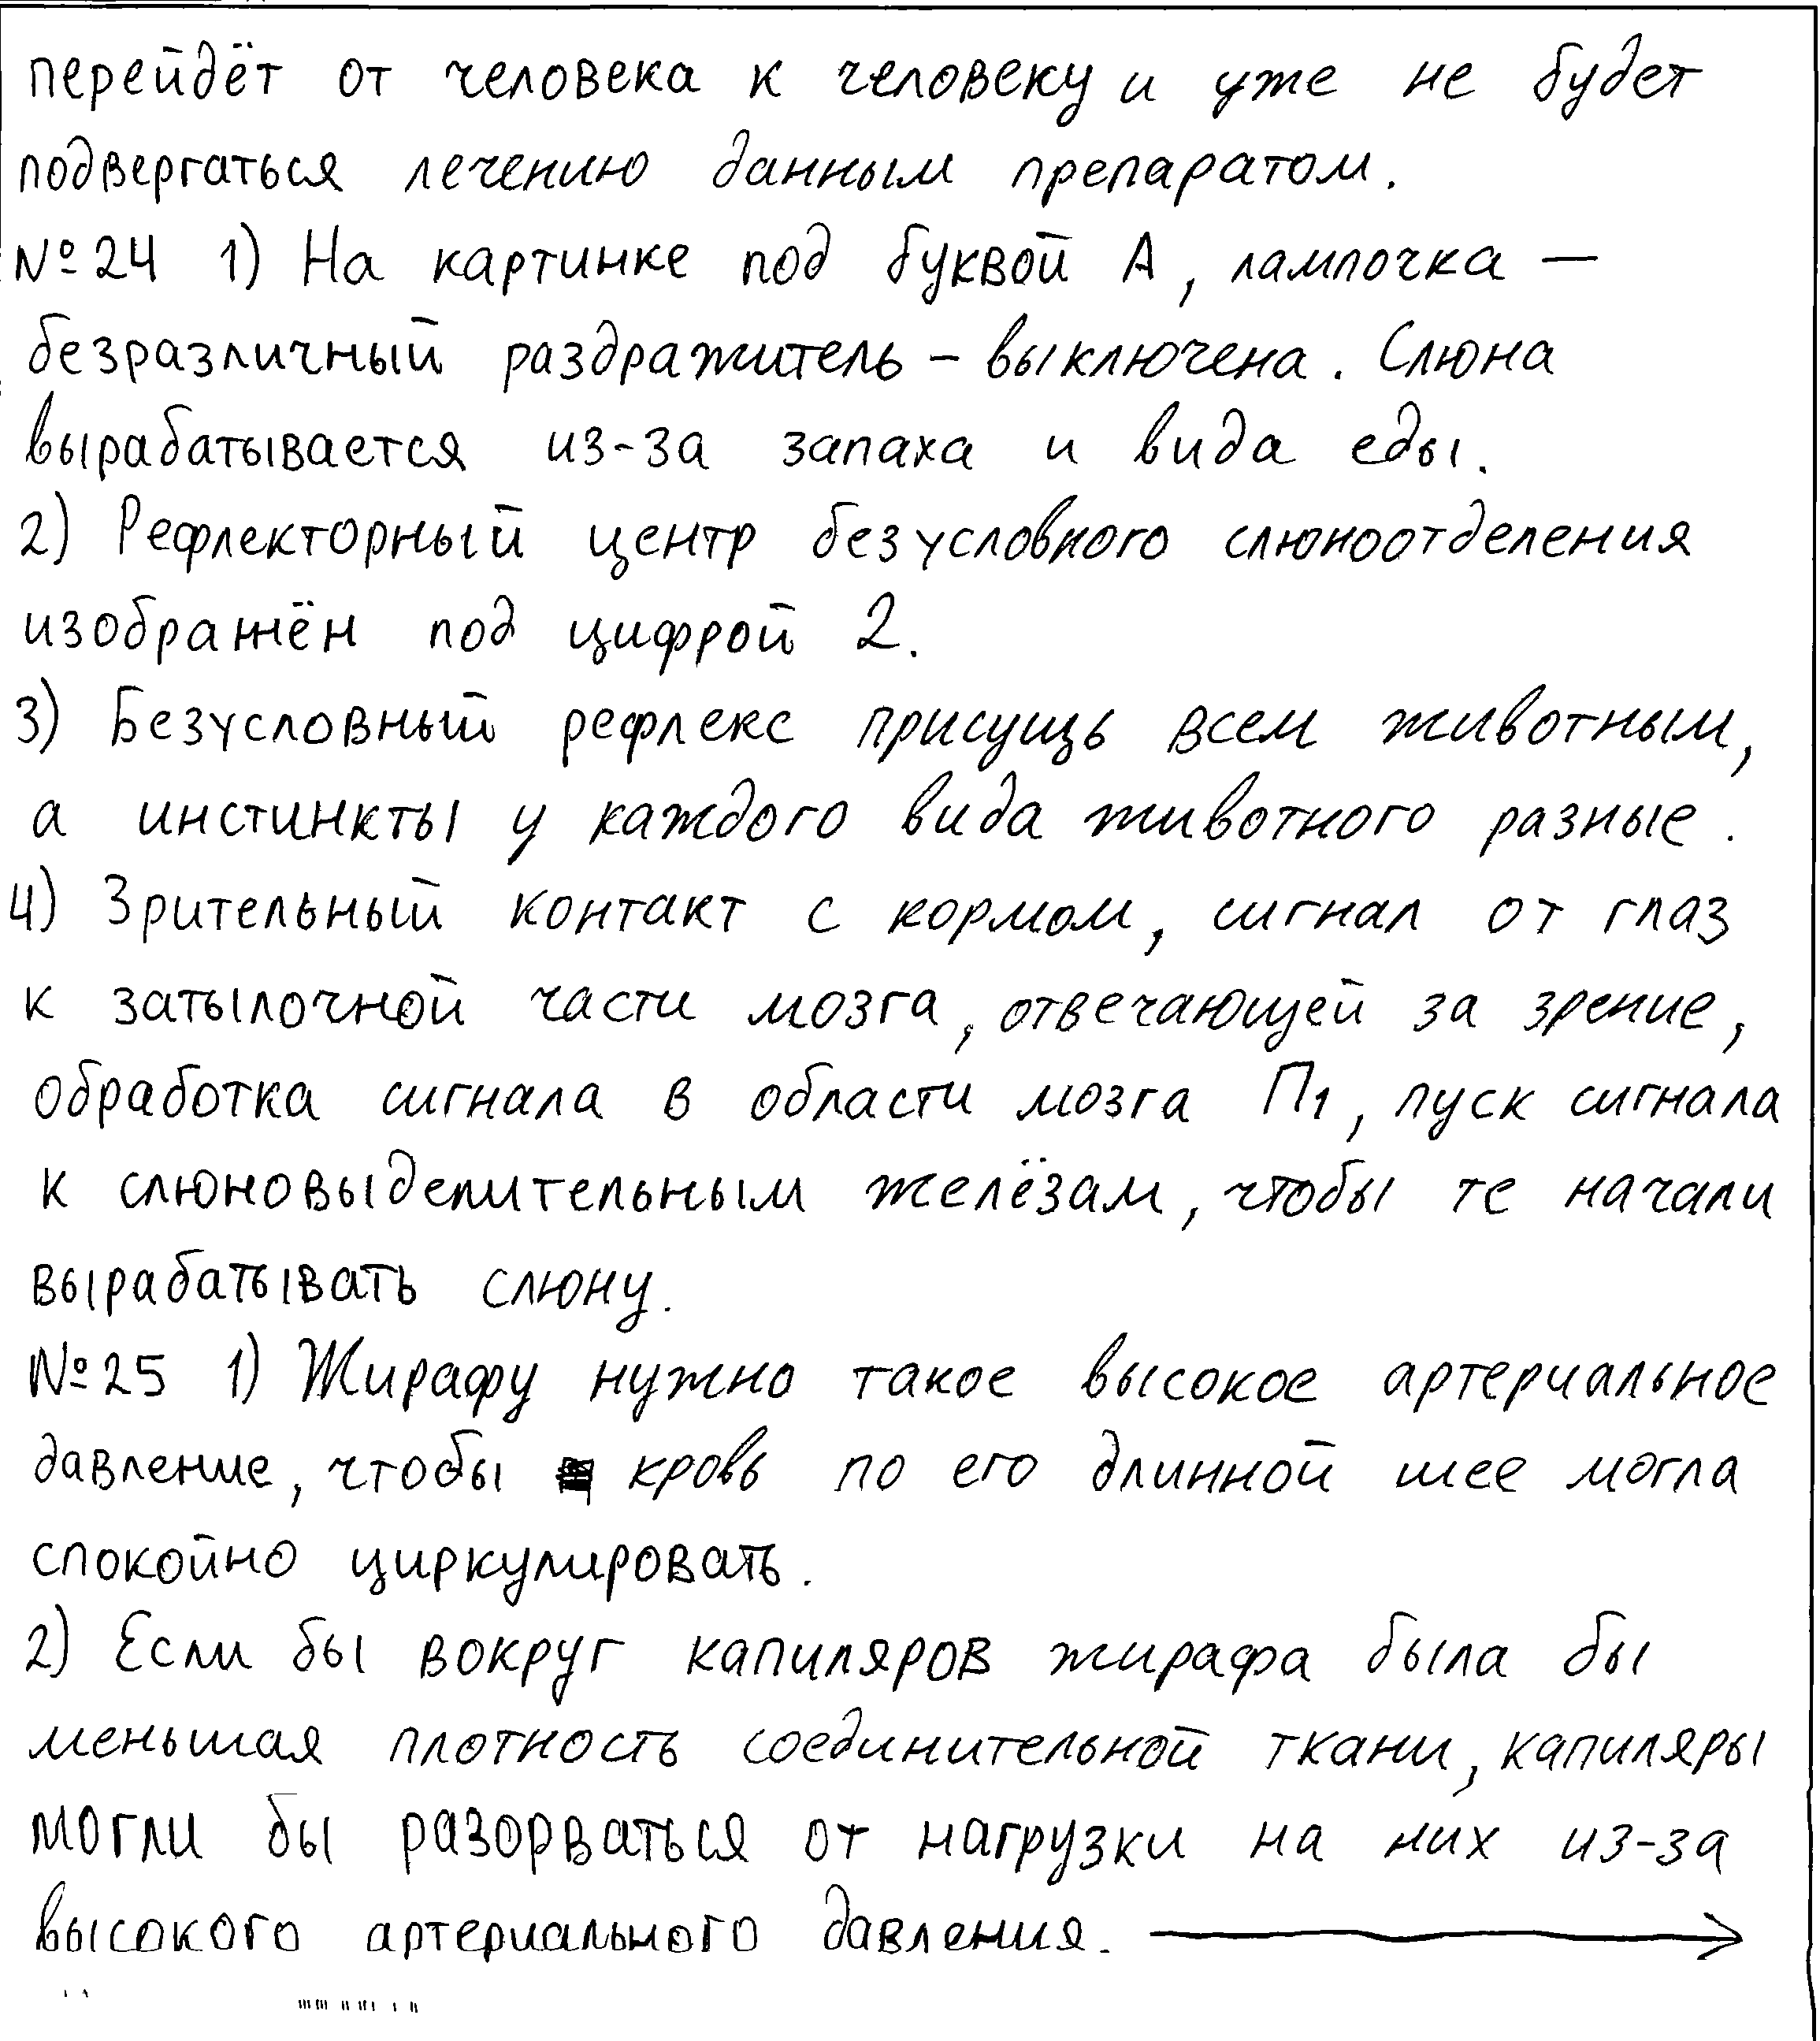 перейдёт от человека к человеку и уже не будет
подвергаться лечению данным препаратом.
№24 1) На картинке под буквой А, лампочка —
безразличный раздражитель – выключена. Слюна
вырабатывается из-за запаха и вида еды.
2) Рефлекторный центр безусловного слюноотделения
изображён под цифрой 2.
3) Безусловный рефлекс присущь всем животным,
а инстинкты у каждого вида животного разные.
4) Зрительный контакт с кормом, сигнал от глаз
к затылочной части мозга, отвечающей за зрение,
обработка сигнала в области мозга П1, пуск сигнала
к слюновыделительным железам, чтобы те начали
вырабатывать слюну.
№25 1) Жирафу нужно такое высокое артериальное
давление, чтобы кровь по его длинной шее могла
спокойно циркулировать.
2) Если бы вокруг капиляров жирафа была бы
меньшая плотность соединительной ткани, капиляры
могли бы разорваться от нагрузки на них из-за
высокого артериального давления. →